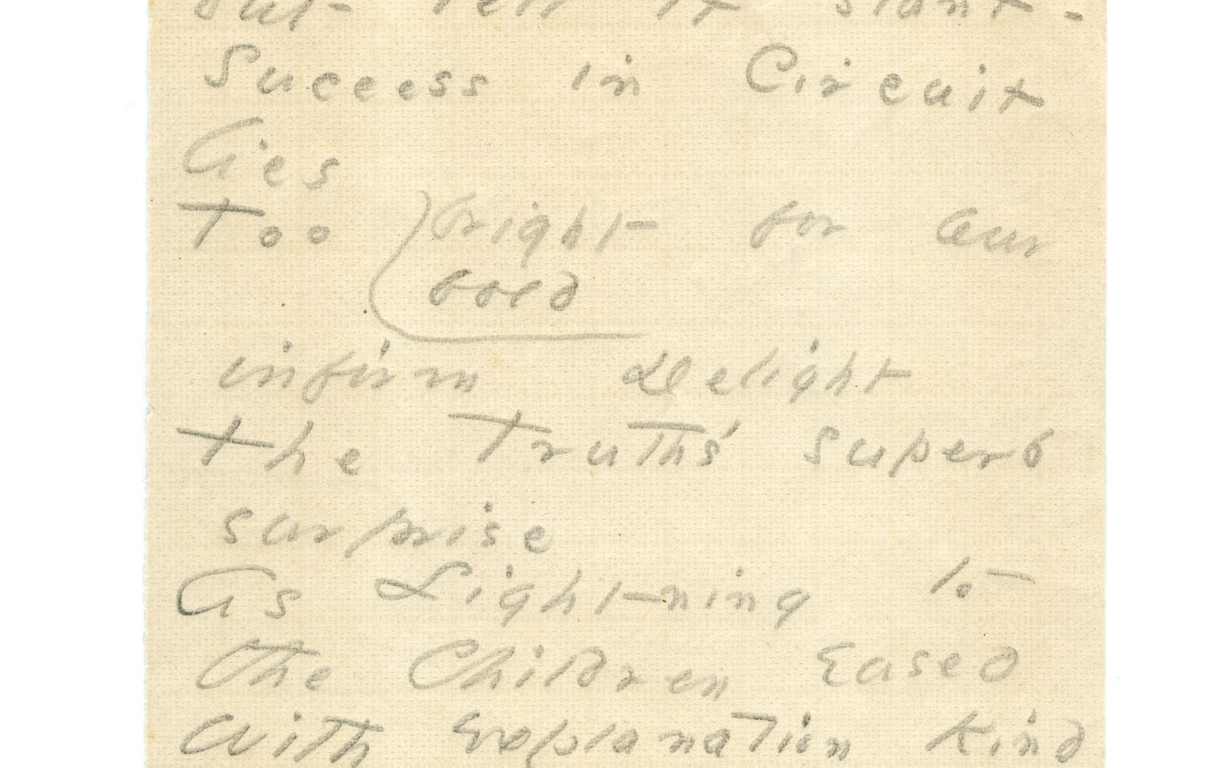 but tell it slant -
Success in Circuit
lies
Too bright for our
bold
infirm Delight
The Truth's superb
surprise
As Lightning to
the Children Eased
With explanation Kind